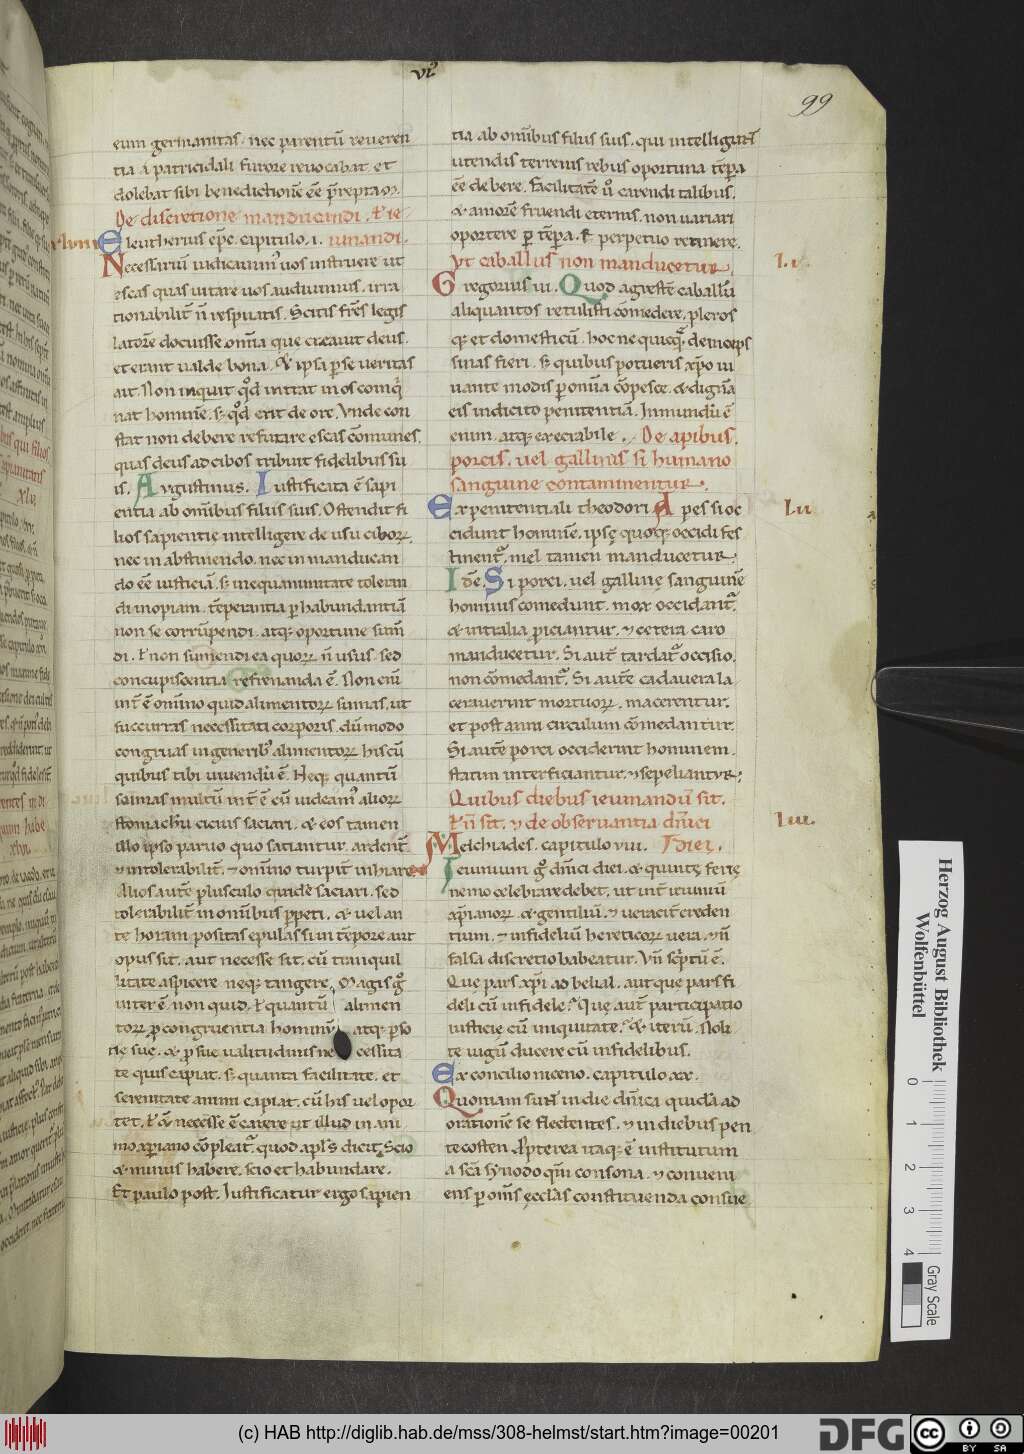 vi
99
eum germanitas. nec parentū reueren
tia a patricidali furore reuocabat. et
dolebat sibi benedictionē eē p̄reptam.
De discretione manducandi. ł ie
Eleutherius ep̄c. capitulo. i. iunandi.
Necessariū iudicauim' uos instruere ut
escas quas uitare uos audiuimus. irra
tionabilit̄ n̄ respuatis. Scitis fr̄es legis
latorē docuisse om̄ia que creauit deus.
et erant ualde bona. & ipsa p̄ se ueritas
ait. Non inquit qd̄ intrat in os comq̇
nat hominē. s; qd̄ exit de ore. Vnde con
stat non debere refutare escas cōmunes.
quas deus ad cibos tribuit fidelibus su
is. Augustinus. Iustificata ē sapi
entia ab om̄ibus filiis suis. Ostendit fi
lios sapientie intelligere de usu ciboꝝ.
nec in abstinendo. nec in manducan
do eē iusticiā. s; in equanimitate toleran
di inopiam. tēperantia p̱ habundantiā
non se corrūpendi. atq; oportune sum̄
di. ł non sumendi ea quoꝝ n̄ usus. sed
concupiscentia refrenanda ē. Non eni
int̄ ē om̄ino quid alimentoꝝ sumas. ut
succurras necessitati corporis. dū modo
congruas in generib; alimentoꝝ his cū
quibus tibi uiuendū ē. Neq; quantū
sumas multū int̄ ē cū uideam' alioꝝ
stomachū cicius saciari. & eos tamen
illo ipso paruo quo satiantur ardent̄
& intolerabilit̄. & om̄ino turpit̄ inhiare.
Alios autē plusculo quidē saciari. sed
tolerabilit̄ in om̄ibus p̱peti. & uel an
te horam positas epulas si in tēpore aut
opus sit. aut necesse sit. cū tranquil
litate aspicere neq; tangere. Magis g̊
inter ē. non quid. ł quantū alimen
toꝝ p̱ congruentia hominū atq; p̱so
ne suę. & p̱ suę ualitudinis necessita
te quis capiat. s; quanta facilitate. et
serenitate animi capiat. cū his uel opor
tet. ł & necesse ē carere ut illud in ani
mo xp̄iano cōpleat̄. quod apl's dicit. Scio
& minus habere. scio et habundare.
Et paulo post. Iustificatur ergo sapien
tia ab om̄ibus filiis suis. qui intelligunt
utendis terrenis rebus oportuna tēpa
eē debere. facilitatē u̇ carendi talibus.
& amorē fruendi eternis. non uariari
oportere p̱ tēpa. s; perpetuo retinere.
Vt caballus non manducetur.
L.i.
Gregorius iii. Quod agrestē caballū
aliquantos retulisti cōmedere. pleros
q; et domesticū. hoc nequaq̄; deinceps
sinas fieri. s; quibus potueris xp̄o iu
uante modis p̱ om̄ia cōpesce. & dignā
eis indicito penitentiā. Inmundū ē
enim. atq; execrabile. De apibus.
porcis. uel gallinis si humano
sanguine contaminentur.
Ex penitentiali theodori. Apes si oc
L.ii
cidunt hominē. ipsę quoq; occidi fes
tinent̄. mel tamen manducetur.
Idē. Si porci. uel gallinę sanguinē
hominis comedunt. mox occidant̄.
& intralia p̱iciantur. & cetera caro
manducetur. Si aut̄ tardat̄ occisio.
non cōmedant̄. Si autē cadauera la
cerauerint mortuoꝝ. macerentur.
et post anni circulum cōmedantur.
Si autē porci occiderint hominem.
statim interficiantur. & sepeliantur;
Quibus diebus ieiunandū sit.
ł n̄ sit. & de obseruantia dn̄ici
L.iii.
Melchiades. capitulo viii. diei.
Ieiunium g̊ dn̄ici diei. & quintę ferię
nemo celebrare debet. ut int̄ ieiuniū
xp̄ianoꝝ. & gentiliū. & ueracit̄ creden
tium. & infideliū hereticoꝝ uera. & n̄
falsa discretio habeatur. Vn̄ sc̄ptū ē.
Que pars xp̄i ad belial. aut que pars fi
deli cū infidele? Quę aut̄ participatio
iusticię cū iniquitate? & iterū. Noli
te iugū ducere cū infidelibus.
Ex concilio niceno. capitulo xx.
Quoniam sunt in die dn̄ica quidā ad
orationē se flectentes. & in diebus pen
tecosten. Propterea itaq; ē institutum
a sc̄a synodo qm̄ consona. & conueni
ens p̱ om̄s ęccl'as constituenda consue
Herzog August Bibliothek
Wolfenbüttel
0 1 2 3 4
Gray Scale
(c) HAB http://diglib.hab.de/mss/308-helmst/start.htm?image=00201
DFG
cc BY SA